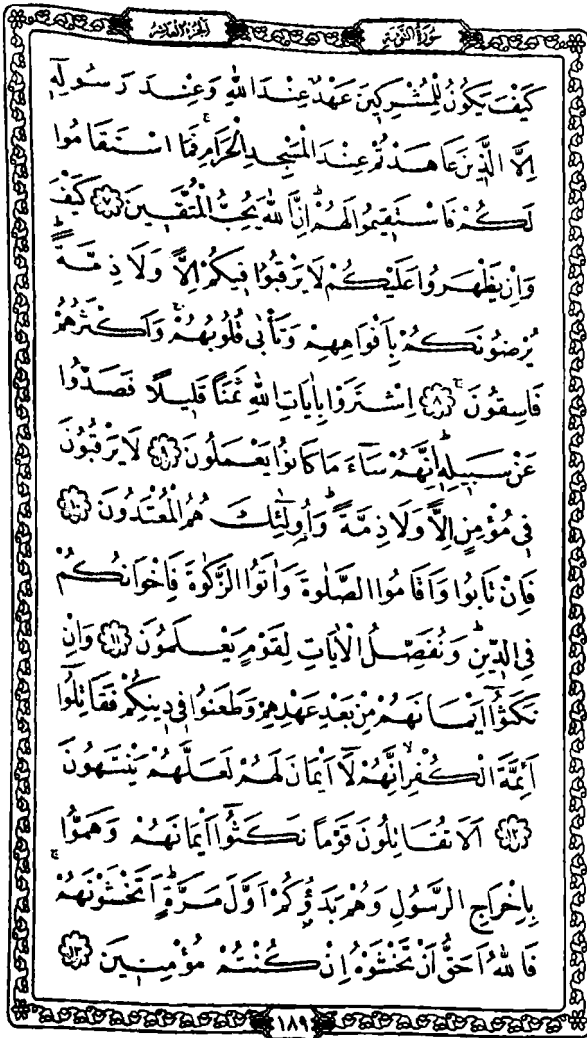 الجزء العاشر سورة التوبة
كَيْفَ يَكُونُ لِلْمُشْرِكِينَ عَهْدٌ عِنْدَ اللّٰهِ وَعِنْدَ رَسُولِهٖٓ
اِلَّا الَّذِينَ عَاهَدْتُمْ عِنْدَ الْمَسْجِدِ الْحَرَامِۚ فَمَا اسْتَقَامُوا
لَكُمْ فَاسْتَقِيمُوا لَهُمْۜ اِنَّ اللّٰهَ يُحِبُّ الْمُتَّقِينَ ﴿٧﴾ كَيْفَ
وَاِنْ يَظْهَرُوا عَلَيْكُمْ لَا يَرْقُبُوا فِيكُمْ اِلًّا وَلَا ذِمَّةًۜ
يُرْضُونَكُمْ بِاَفْوَاهِهِمْ وَتَأْبٰى قُلُوبُهُمْۚ وَاَكْثَرُهُمْ
فَاسِقُونَۚ ﴿٨﴾ اِشْتَرَوْا بِاٰيَاتِ اللّٰهِ ثَمَنًا قَلِيلًا فَصَدُّوا
عَنْ سَبِيلِهٖۜ اِنَّهُمْ سَآءَ مَا كَانُوا يَعْمَلُونَ ﴿٩﴾ لَا يَرْقُبُونَ
فِي مُؤْمِنٍ اِلًّا وَلَا ذِمَّةًۜ وَاُولٰٓئِكَ هُمُ الْمُعْتَدُونَ ﴿١٠﴾
فَاِنْ تَابُوا وَاَقَامُوا الصَّلٰوةَ وَاٰتَوُا الزَّكٰوةَ فَاِخْوَانُكُمْ
فِي الدِّينِۜ وَنُفَصِّلُ الْاٰيَاتِ لِقَوْمٍ يَعْلَمُونَ ﴿١١﴾ وَاِنْ
نَكَثُٓوا اَيْمَانَهُمْ مِنْ بَعْدِ عَهْدِهِمْ وَطَعَنُوا فِي دِينِكُمْ فَقَاتِلُٓوا
اَئِمَّةَ الْكُفْرِۙ اِنَّهُمْ لَٓا اَيْمَانَ لَهُمْ لَعَلَّهُمْ يَنْتَهُونَ
﴿١٢﴾ اَلَا تُقَاتِلُونَ قَوْمًا نَكَثُٓوا اَيْمَانَهُمْ وَهَمُّوا
بِاِخْرَاجِ الرَّسُولِ وَهُمْ بَدَؤُ۫كُمْ اَوَّلَ مَرَّةٍۜ اَتَخْشَوْنَهُمْۚ
فَاللّٰهُ اَحَقُّ اَنْ تَخْشَوْهُ اِنْ كُنْتُمْ مُؤْمِنِينَ ﴿١٣﴾
١٨٩